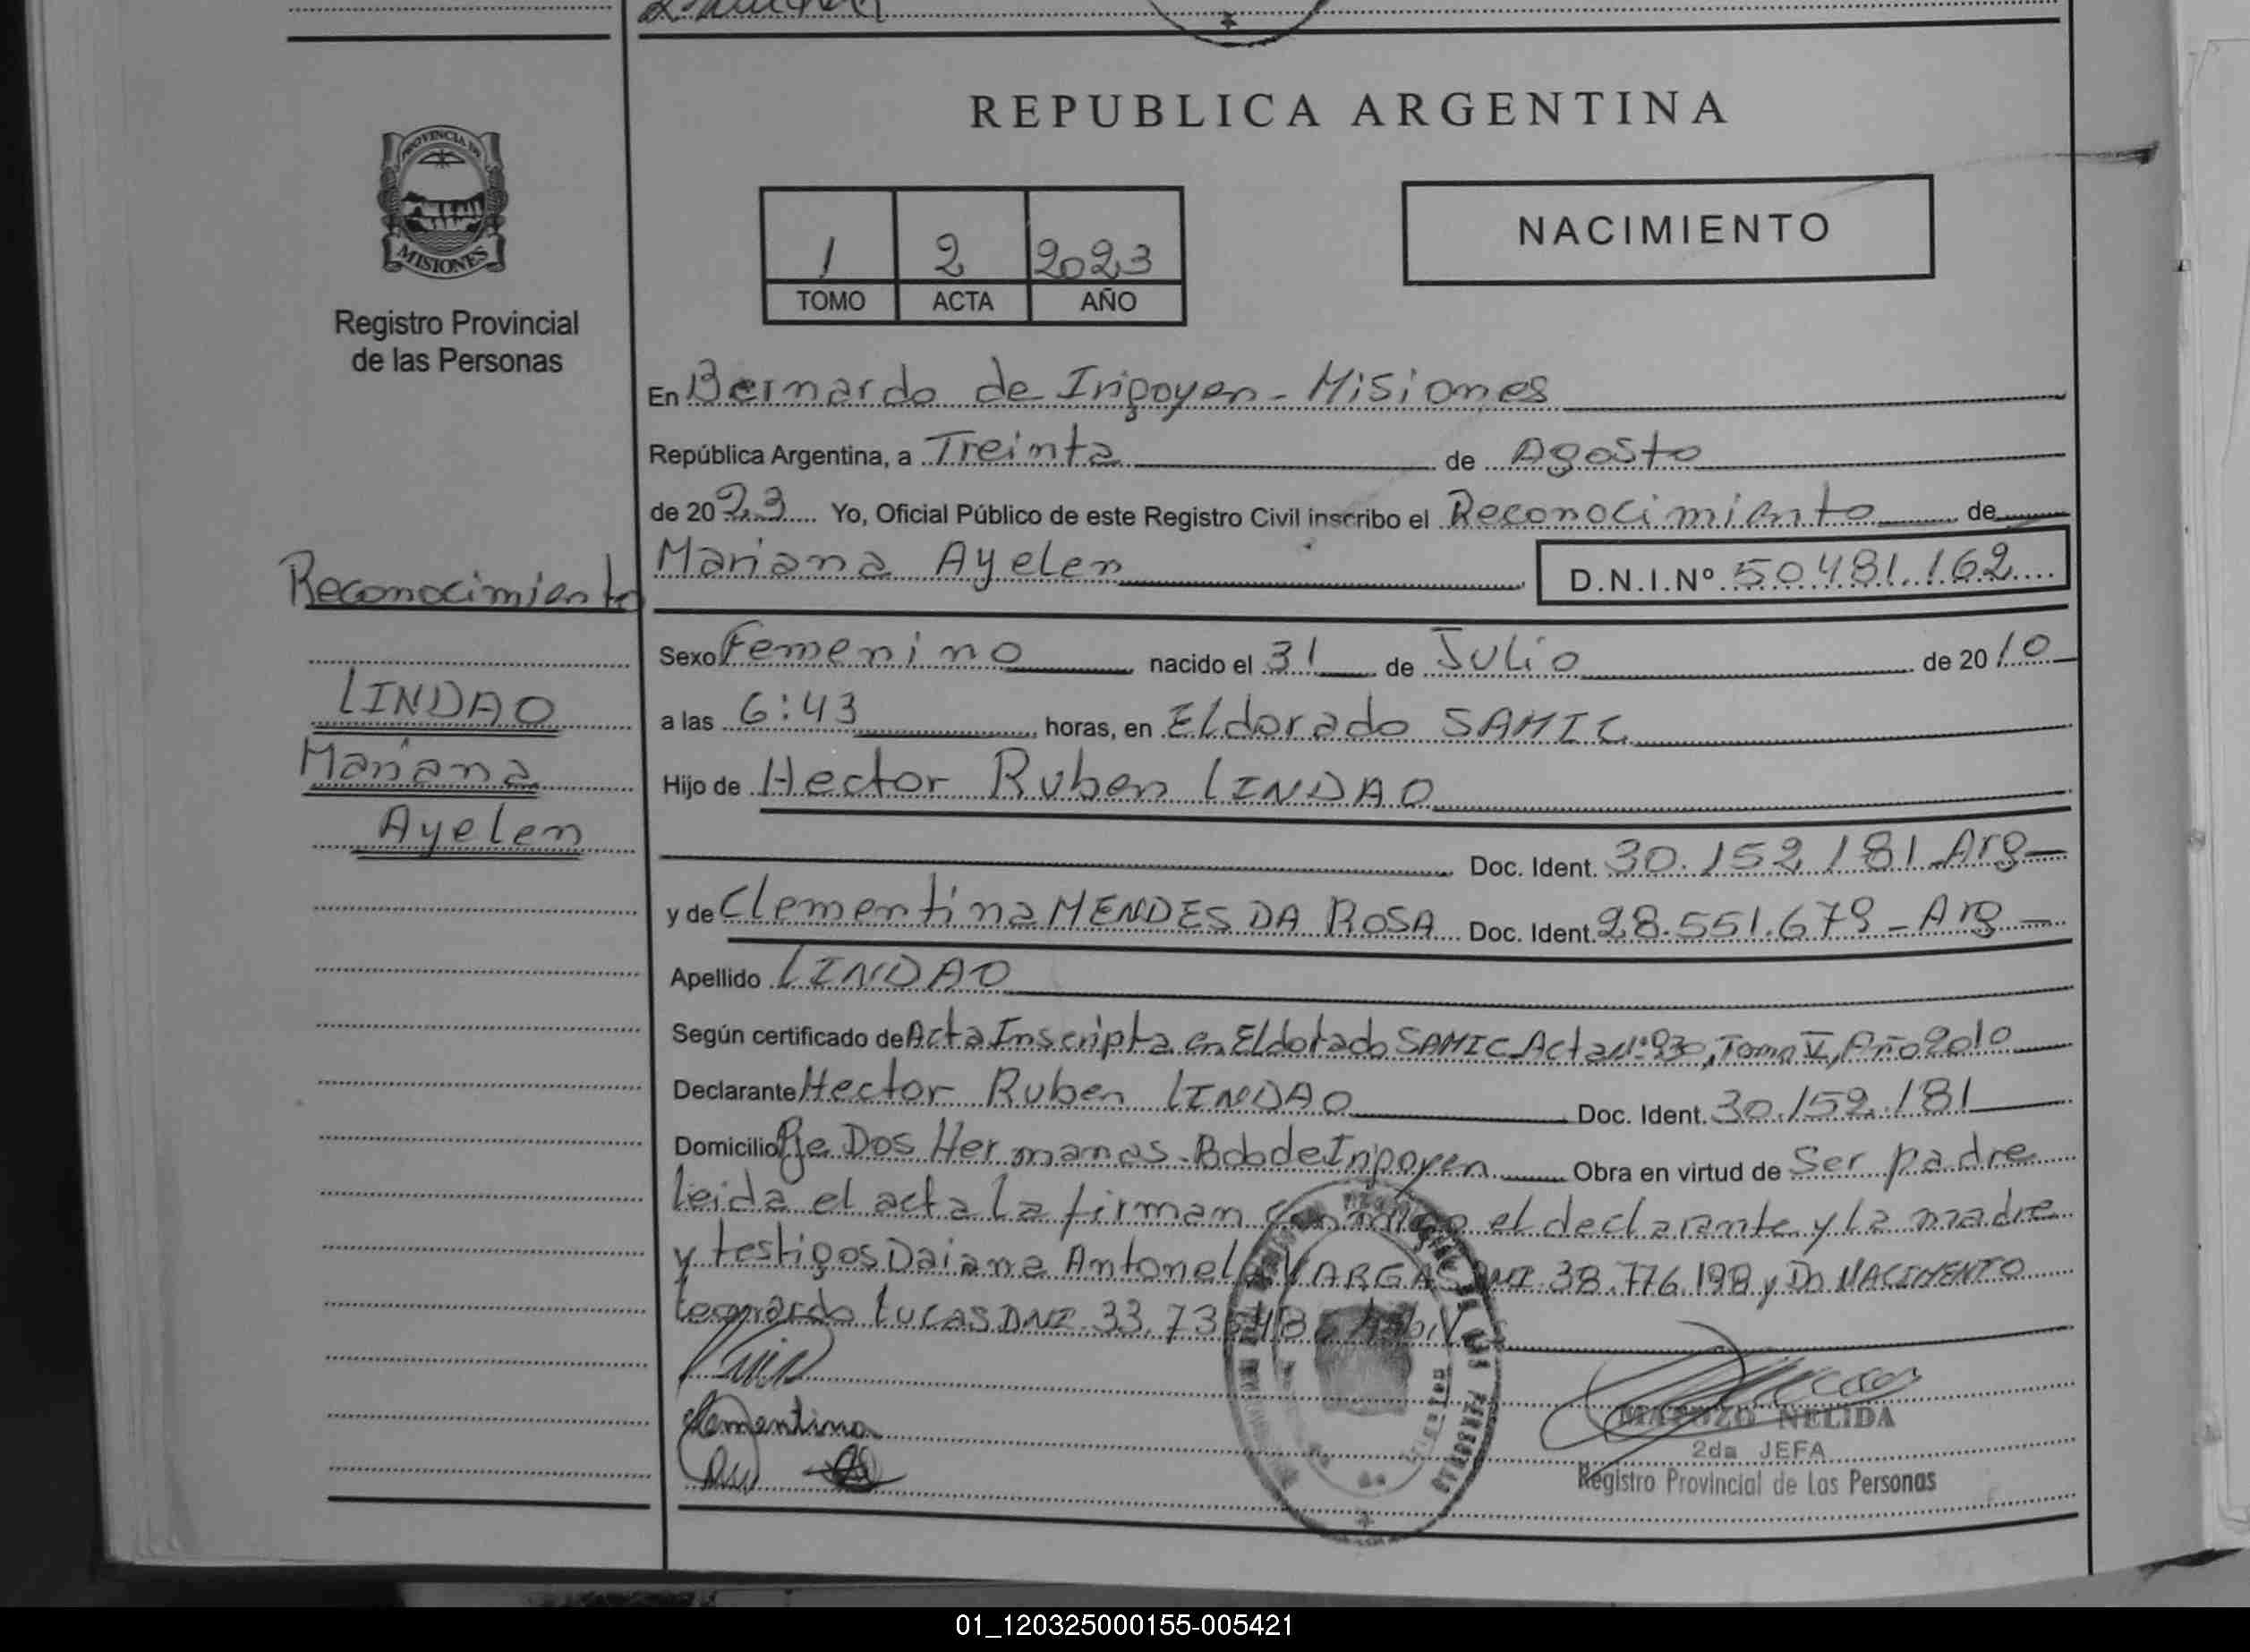 REPUBLICA ARGENTINA
PROVINCIA DE
MISIONES
Registro Provincial
de las Personas
1 2 2023
TOMO ACTA AÑO
NACIMIENTO
En Bernardo de Irigoyen - Misiones
República Argentina, a Treinta de Agosto
de 2023 Yo, Oficial Público de este Registro Civil inscribo el Reconocimiento de
Mariana Ayelen D.N.I.Nº 50481.162
Reconocimiento
LINDAO
Mariana
Ayelen
Sexo Femenino nacido el 31 de Julio de 2010
a las 6:43 horas, en Eldorado SAMIC
Hijo de Hector Ruben LINDAO
Doc. Ident. 30.152.181 Arg
y de Clementina MENDES DA ROSA Doc. Ident. 28.551.679 - Arg
Apellido LINDAO
Según certificado de Acta Inscripta en Eldorado SAMIC Acta Nº 930, Tomo V, Año 2010
Declarante Hector Ruben LINDAO Doc. Ident. 30.152.181
Domicilio Pje Dos Hermanas - Bdo de Irigoyen Obra en virtud de Ser padre
leida el acta la firman conmigo el declarante y la madre
y testigos Daiana Antonela VARGAS DNI 38.776.198 y DO NACIMENTO
Leonardo Lucas DNI 33.73
Clementina
MATOZO NELIDA
2da JEFA
Registro Provincial de Las Personas
01_120325000155-005421